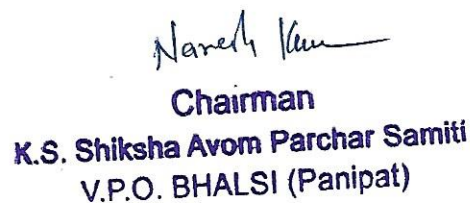 Naresh Kum
Chairman
K.S. Shiksha Avom Parchar Samiti
V.P.O. BHALSI (Panipat)